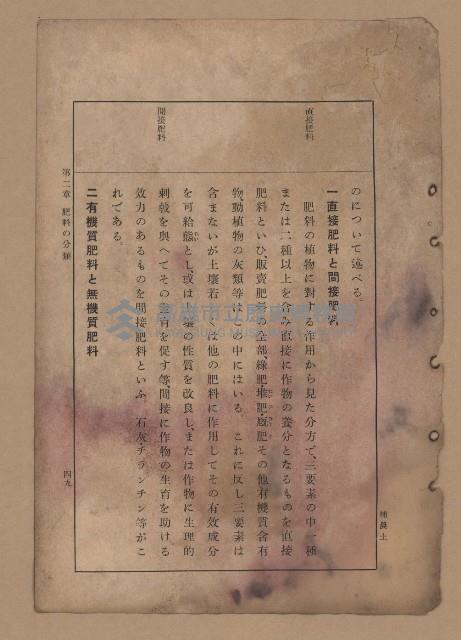 直接肥料
間接肥料
のについて述べる。
一 直接肥料と間接肥料
肥料の植物に對する作用から見た分方で、三要素の中一種
または二種以上を含み直接に作物の養分となるものを直接
肥料といひ、販賣肥料の全部綠肥、堆肥、廐肥その他有機質含有
物、動植物の灰類等はこの中にはいる。これに反し三要素は
含まないが土壤若しくは他の肥料に作用してその有效成分
を可給態とし、或は土壤の性質を改良し、または作物に生理的
刺戟を與へてその發育を促す等、間接に作物の生育を助ける
效力のあるものを間接肥料といふ。石灰・チランチン等がこ
れである。
二 有機質肥料と無機質肥料
第二章 肥料の分類
四九
補農土
高雄市立歷史博物館
KAOHSIUNG MUSEUM OF HISTORY